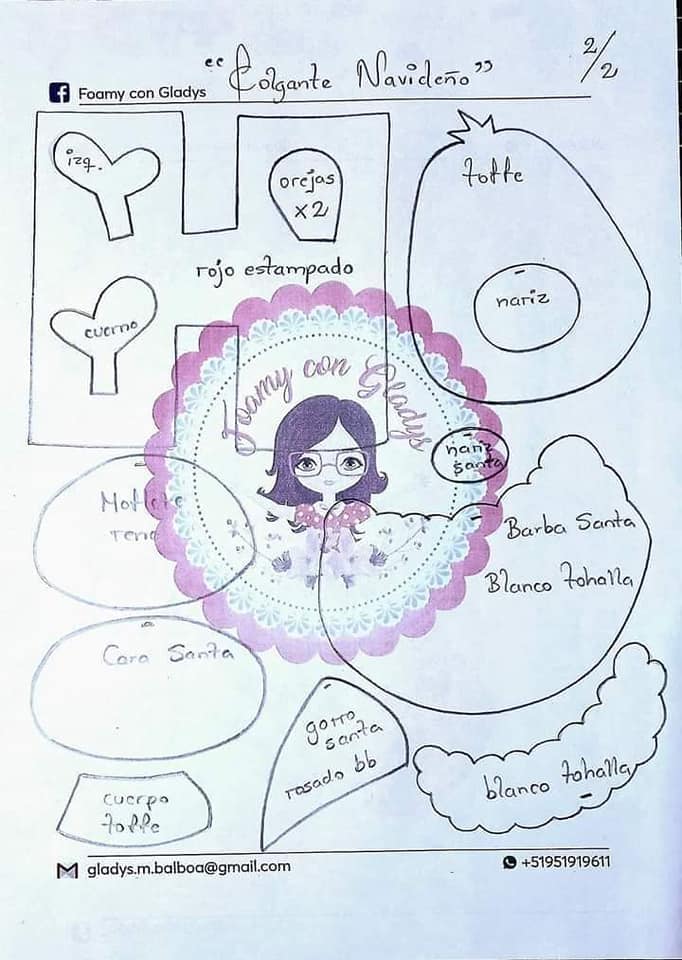 "Colgante Navideño"
2/2
Foamy con Gladys
izq.
orejas
x2
toffe
rojo estampado
nariz
cuerno
Foamy con Gladys
nariz
santa
Mofleте
reno
Barba Santa
Blanco tohalla
Cara Santa
gorro
santa
rosado bb
blanco tohalla
cuerpo
toffe
gladys.m.balboa@gmail.com
+51951919611